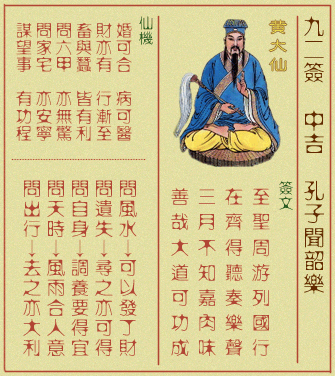 九二簽 中吉 孔子聞韶樂
黃大仙
簽文
至聖周游列國行
在齊得聽奏樂聲
三月不知嘉肉味
善哉大道可功成
仙機
婚可合 病可醫
財亦有 行漸至
畜與蠶 皆有利
問六甲 亦無驚
問家宅 亦安寧
謀望事 有功程
問風水→可以發了財
問遺失→尋之亦可得
問自身→調養要得宜
問天時→風雨合人意
問出行→去之亦大利